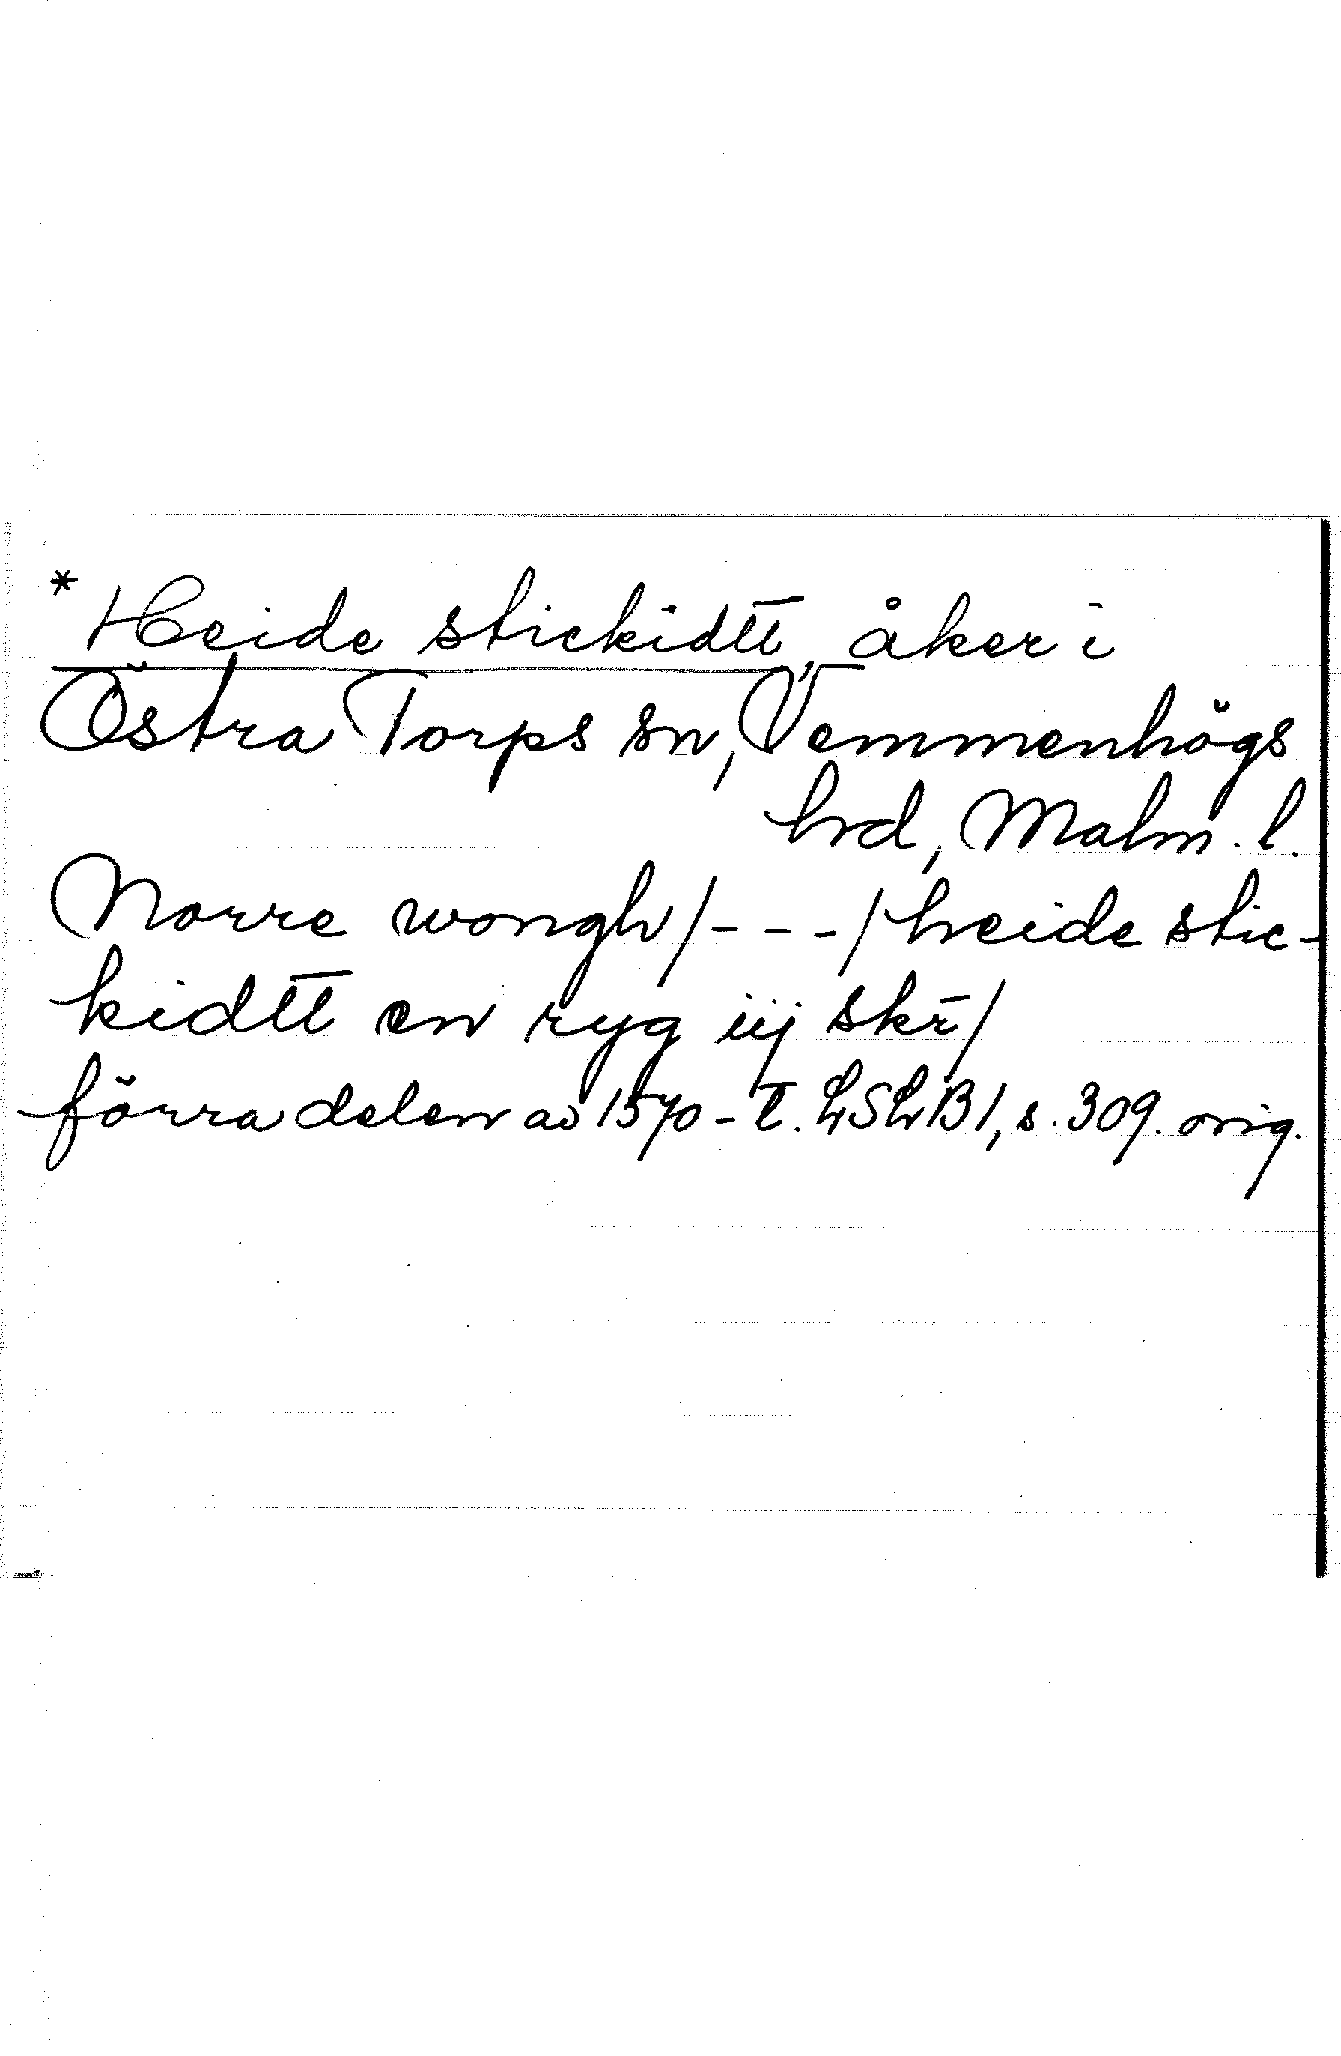 * Heide stickidtt, åker i
Östra Torps sn, Vemmenhögs
hrd, Malm. l.
Norre wongh /- - -/ heide stic-
kidtt en ryg iij skr̄/
förra delen av 1570-t. LSLB1, s. 309. orig.